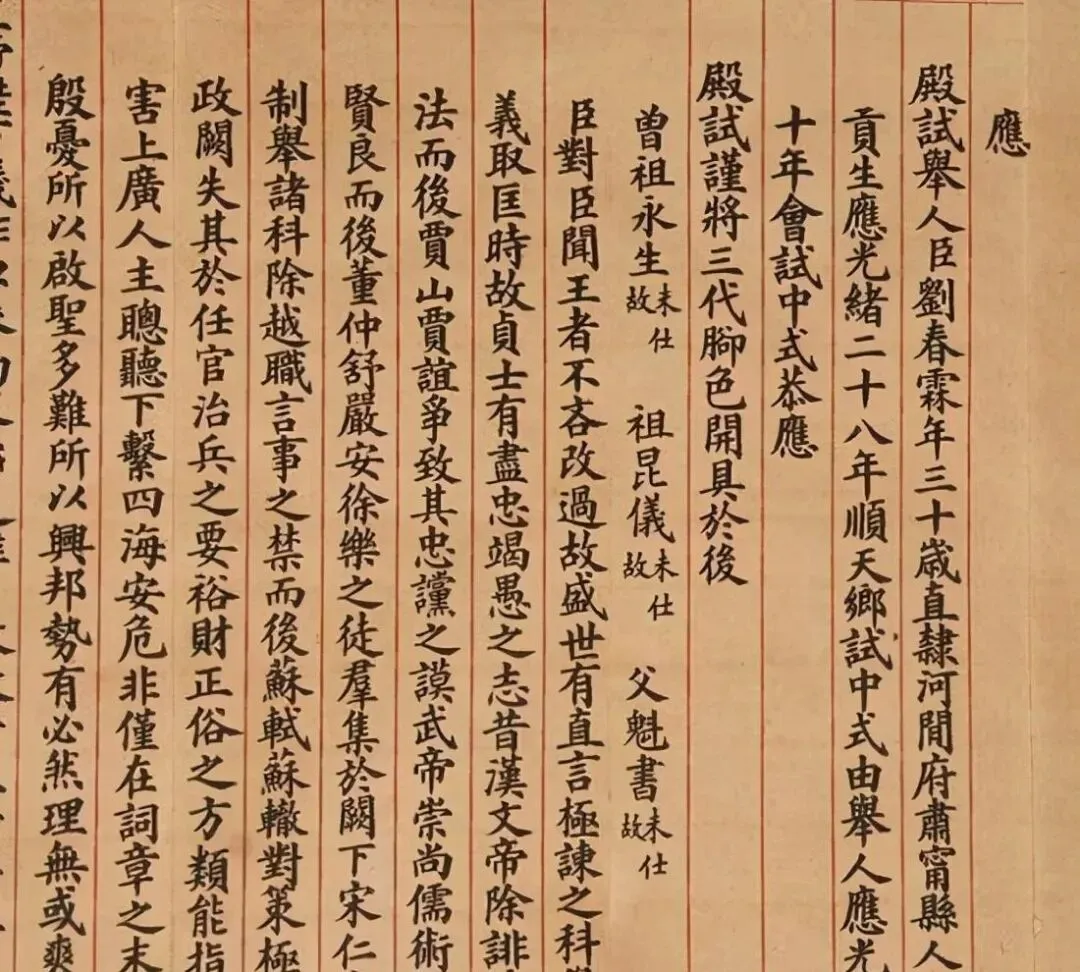 應
殿試舉人臣劉春霖年三十歲直隸河間府肅甯縣人
貢生應光緒二十八年順天鄉試中式由舉人應光
十年會試中式恭應
殿試謹將三代腳色開具於後
曾祖永生未仕故 祖昆儀未仕故 父魁書未仕故
臣對臣聞王者不吝改過故盛世有直言極諫之科
義取匡時故貞士有盡忠竭愚之志昔漢文帝除誹
法而後賈山賈誼爭致其忠讜之謨武帝崇尚儒術
賢良而後董仲舒嚴安徐樂之徒羣集於闕下宋仁
制舉諸科除越職言事之禁而後蘇軾蘇轍對策極
政闕失其於任官治兵之要裕財正俗之方類能指
害上廣人主聰聽下繫四海安危非僅在詞章之末
殷憂所以啟聖多難所以興邦勢有必然理無或爽